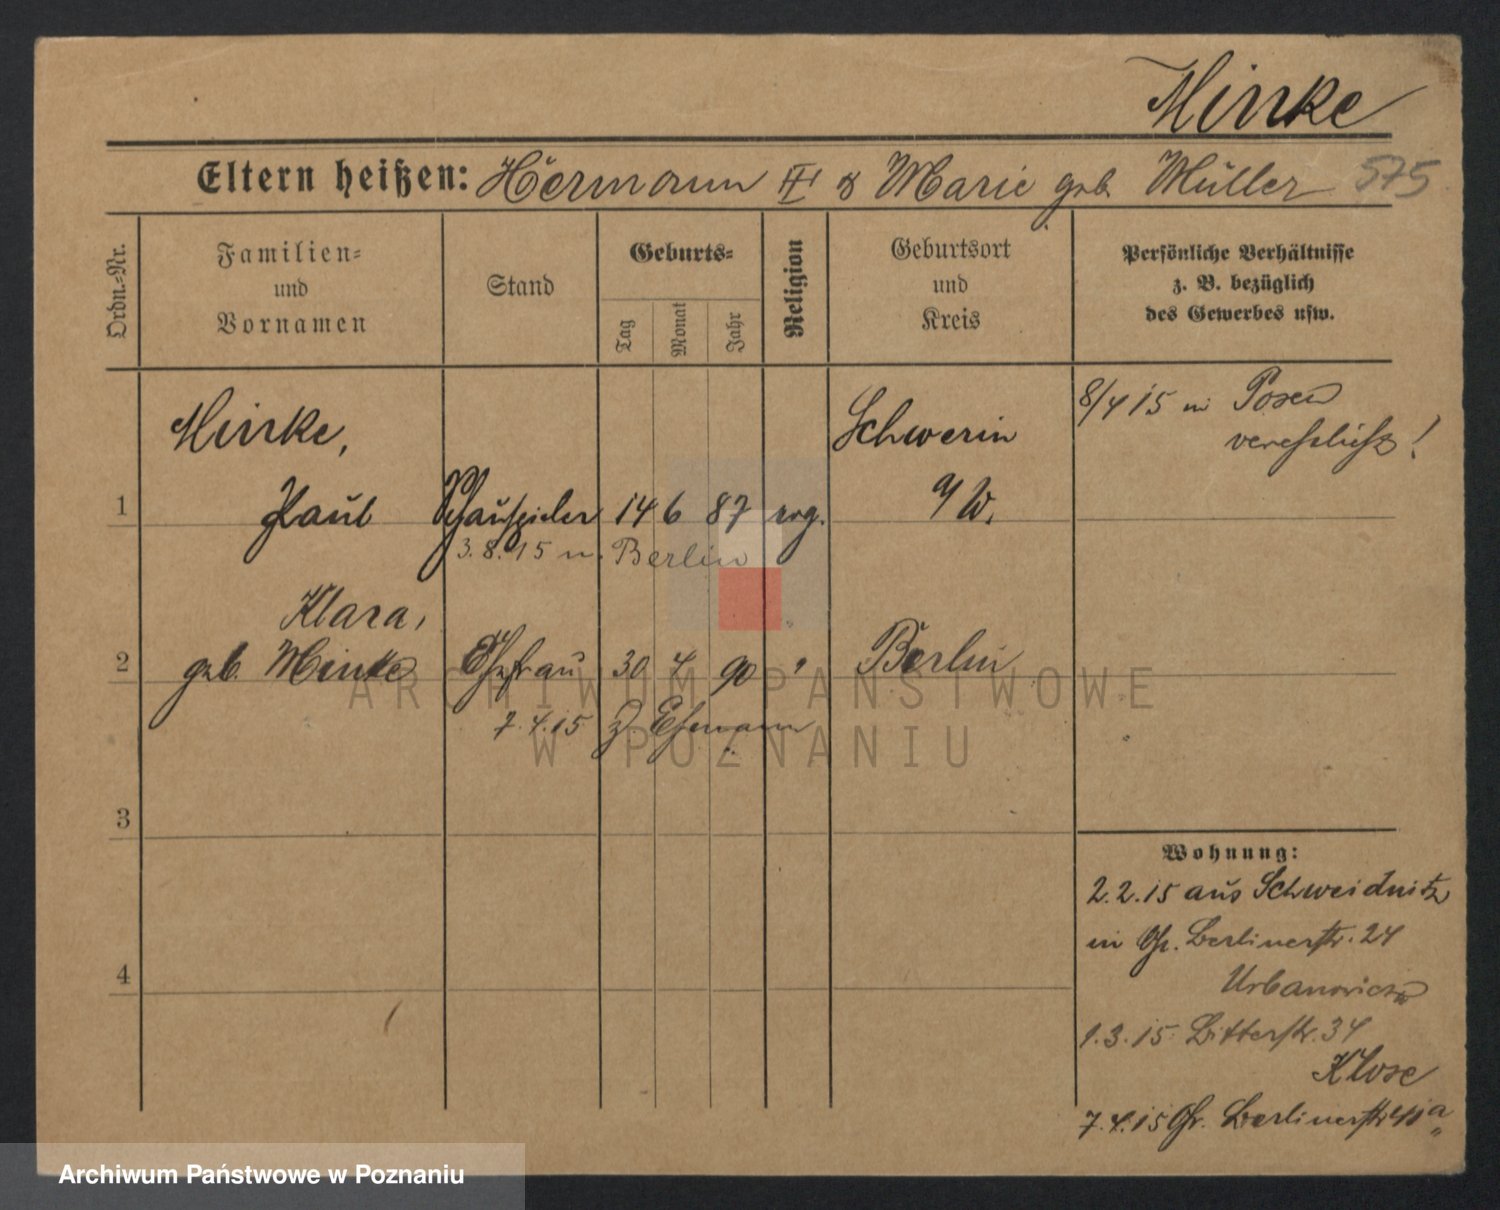 Minke
Eltern heißen: Hermann III & Marie geb. Müller 575
Ordn.-Nr.
Familien-
und
Vornamen
Stand
Geburts-
Tag
Monat
Jahr
Religion
Geburtsort
und
Kreis
Persönliche Verhältnisse
z. B. bezüglich
des Gewerbes usw.
Minke,
Schwerin
8/4 15 in Posen
verehelicht!
1 Paul Schauspieler 14 6 87 evg. a/W.
3.8.15 n. Berlin
Klara,
2 geb. Minke Ehefrau 30 4 90 " Berlin
7.4.15 z. Ehemann
3
4
Wohnung:
2.2.15 aus Schweidnitz
in Gr. Berlinerstr. 24
Urbanowicz
1.3.15 Ritterstr. 34
Klose
7.4.15 Gr. Berlinerstr.
ARCHIWUM PAŃSTWOWE
W POZNANIU
Archiwum Państwowe w Poznaniu